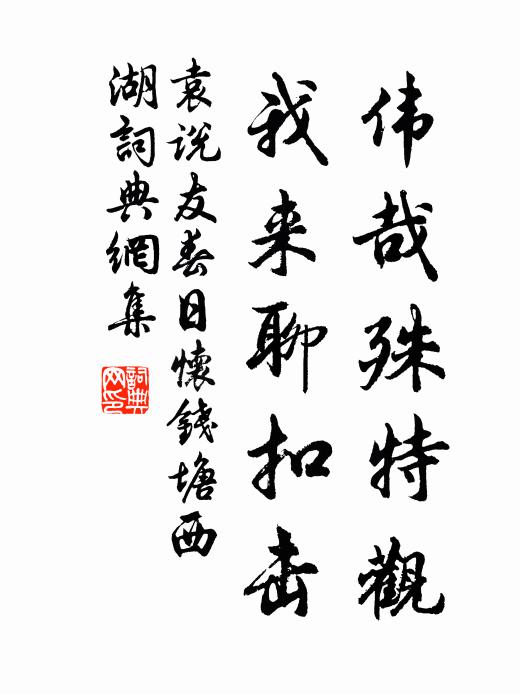 伟哉殊特觀
我来聊扣击
袁说友春日懷錢塘西
湖詞典網集
詞典网印